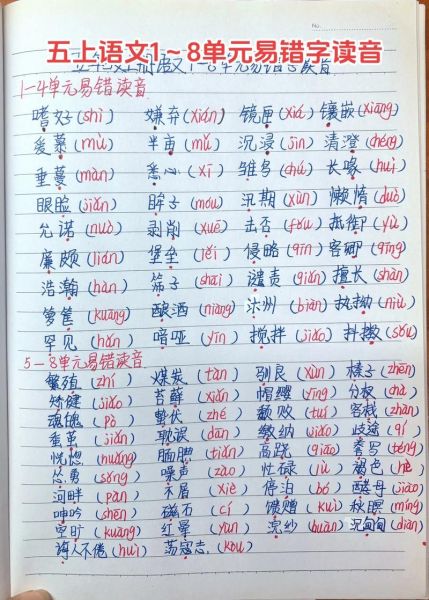 No.
五上语文1~8单元易错字读音
1-4单元易错读音
嗜好(shì) 嫌弃(xián) 镜匣(xiá) 镶嵌(xiāng)
爱慕(mù) 半亩(mǔ) 沉浸(jìn) 清澄(chéng)
垂蔓(màn) 悉心(xī) 雏鸟(chú) 长喙(huì)
眼睑(jiǎn) 眸子(móu) 汛期(xùn) 懒惰(duò)
允诺(nuò) 剥削(xuē) 击缶(fǒu) 抵御(yù)
廉颇(lián) 堡垒(lěi) 侵略(qīn) 客卿(qīng)
浩瀚(hàn) 筛子(shāi) 谴责(qiǎn) 擅长(shàn)
箩筐(kuāng) 酿酒(niàng) 汴州(biàn) 执拗(niù)
罕见(hǎn) 喑哑(yīn) 搅拌(jiǎo) 抖擞(sǒu)
5-8单元易错读音
繁殖(zhí) 煤炭(tàn) 驯良(xùn) 榛子(zhēn)
矫健(jiǎo) 苔藓(xiǎn) 帽缨(yīng) 分杈(chà)
魂魄(pò) 蛰伏(zhé) 颓败(tuí) 客栈(zhàn)
蚕茧(jiǎn) 耽误(dān) 缴纳(jiǎo) 歧途(qí)
恍惚(huǎng) 腼腆(tiǎn) 高跷(qiāo) 誊写(téng)
怂恿(sǒng) 噪声(zào) 忙碌(lù) 褐色(hè)
河畔(pàn) 不屑(xiè) 停泊(bó) 酵母(jiào)
呻吟(shēn) 磁石(cí) 馈赠(kuì) 秋暝(míng)
空旷(kuàng) 红晕(yùn) 浣纱(huàn) 沉甸甸(diàn)
诲人不倦(huì) 荡寇志(kòu)